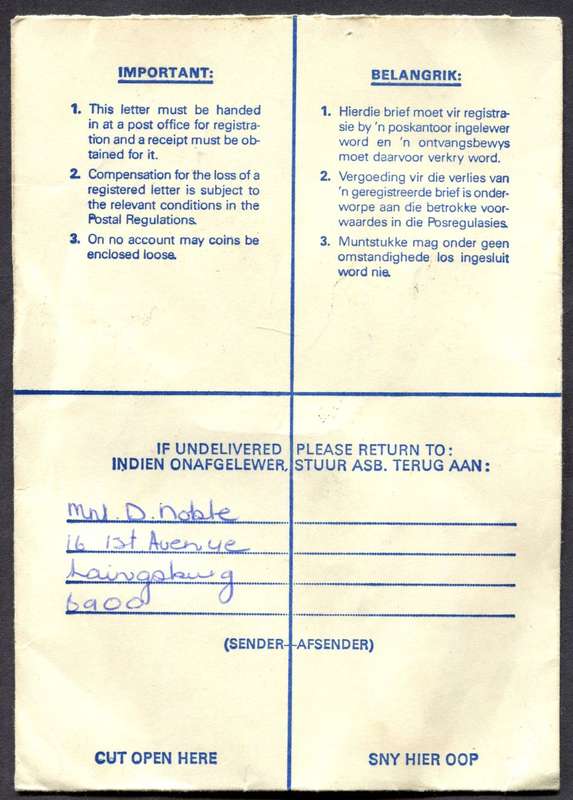 IMPORTANT:
1. This letter must be handed
in at a post office for registra-
tion and a receipt must be ob-
tained for it.
2. Compensation for the loss of a
registered letter is subject to
the relevant conditions in the
Postal Regulations.
3. On no account may coins be
enclosed loose.
BELANGRIK:
1. Hierdie brief moet vir registra-
sie by 'n poskantoor ingelewer
word en 'n ontvangsbewys
moet daarvoor verkry word.
2. Vergoeding vir die verlies van
'n geregistreerde brief is onder-
worpe aan die betrokke voor-
waardes in die Posregulasies.
3. Muntstukke mag onder geen
omstandighede los ingesluit
word nie.
IF UNDELIVERED PLEASE RETURN TO:
INDIEN ONAFGELEWER, STUUR ASB. TERUG AAN:
Mrs. D. Noble
16 1st Avenue
Laingsburg
6900
(SENDER—AFSENDER)
CUT OPEN HERE
SNY HIER OOP